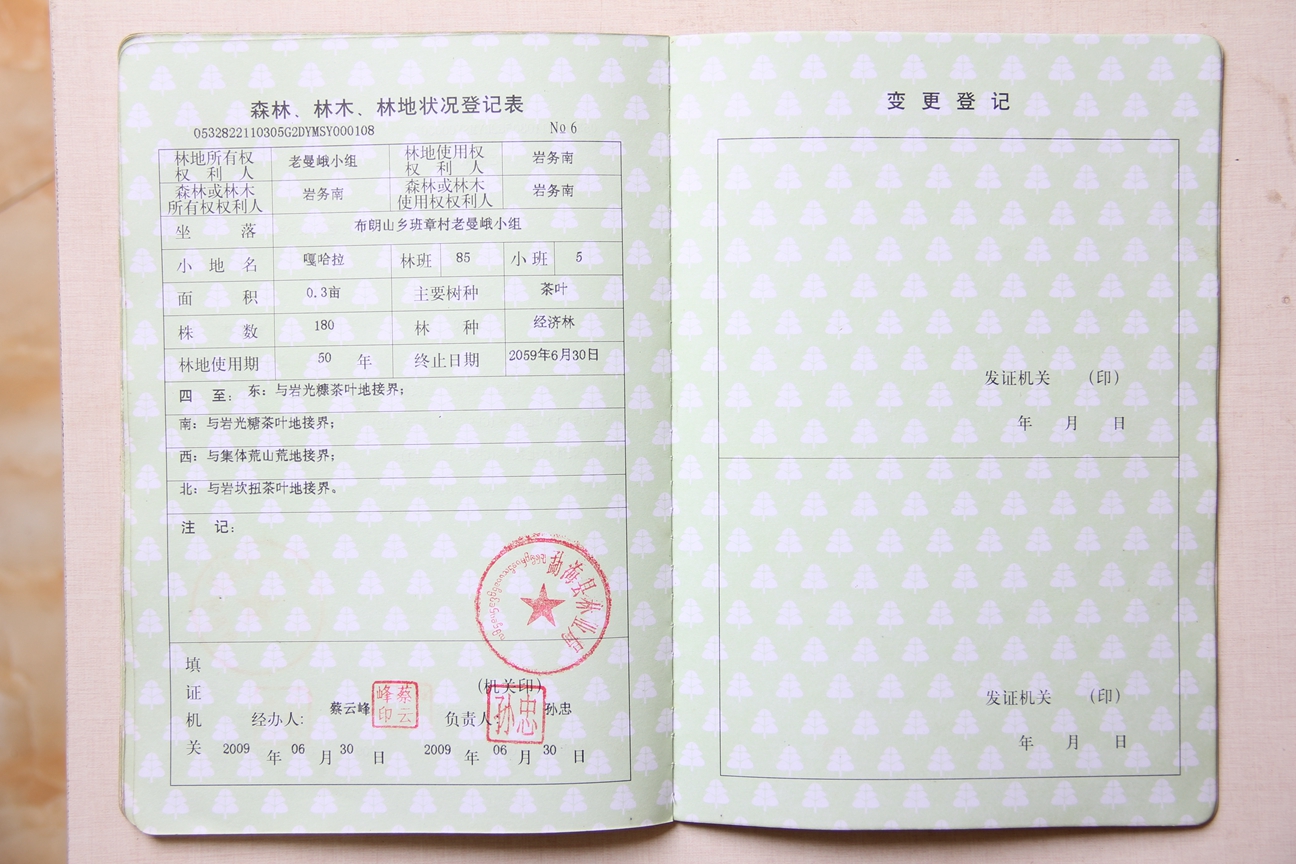 森林、林木、林地状况登记表
0532822110305G2DYMSY000108 No 6
林地所有权权利人 老曼峨小组 林地使用权权利人 岩务南
森林或林木所有权权利人 岩务南 森林或林木使用权权利人 岩务南
坐落 布朗山乡班章村老曼峨小组
小地名 嘎哈拉 林班 85 小班 5
面积 0.3亩 主要树种 茶叶
株数 180 林种 经济林
林地使用期 50 年 终止日期 2059年6月30日
四至：东：与岩光糠茶叶地接界；
南：与岩光糖茶叶地接界；
西：与集体荒山荒地接界；
北：与岩坎扭茶叶地接界。
注记：
勐海县林业局
填证机关
(机关印)
经办人： 蔡云峰 蔡云峰印 负责人： 孙忠 孙忠
2009 年 06 月 30 日 2009 年 06 月 30 日
变更登记
发证机关 （印）
年 月 日
发证机关 （印）
年 月 日